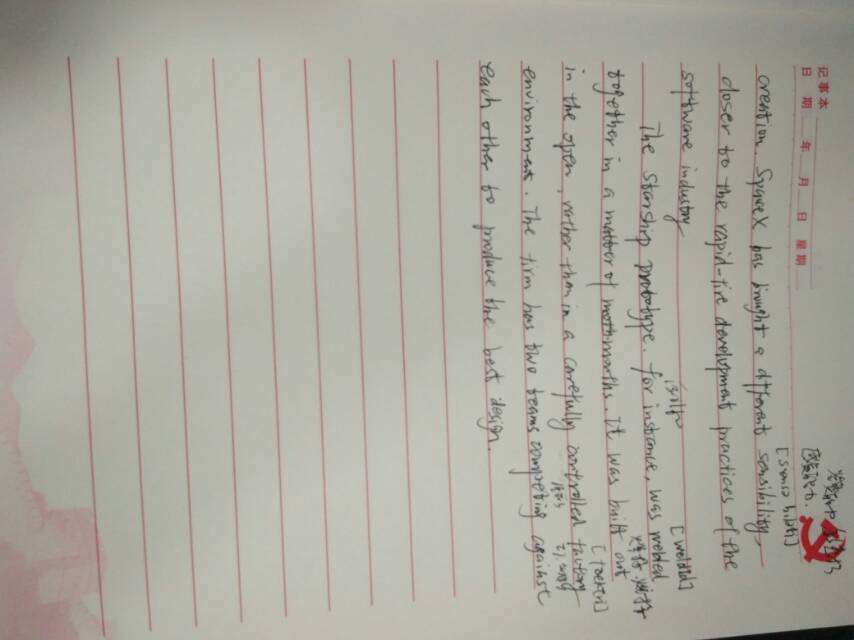 记事本
日期 年 月 日 星期
[sensə biləti]
creation, SpaceX has brought a different sensibility,
closer to the rapid-fire development practices of the
software industry
[weldid]
The Starship prototype, for instance, was welded
焊接
together in a matter of moth months. It was built out
in the open, rather than in a carefully controlled factory
environment. The firm has two teams competing against
each other to produce the best design.